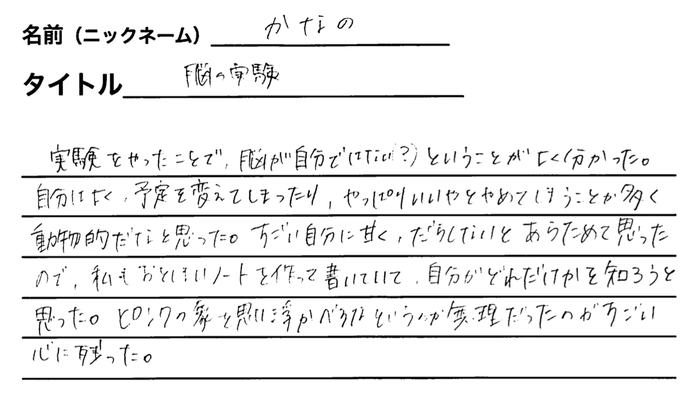 名前（ニックネーム） かなの
タイトル 脳の実験
実験をやったことで、脳が自分ではない(?)ということがよく分かった。
自分はよく、予定を変えてしまったり、やっぱりいいやとやめてしまうことが多く
動物的だなと思った。すごい自分に甘く、だらしないとあらためて思った
ので、私もおとしまいノートを作って書いていて、自分がどれだけかを知ろうと
思った。ピンクの象を思い浮かべるなというのが無理だったのがすごい
心に残った。